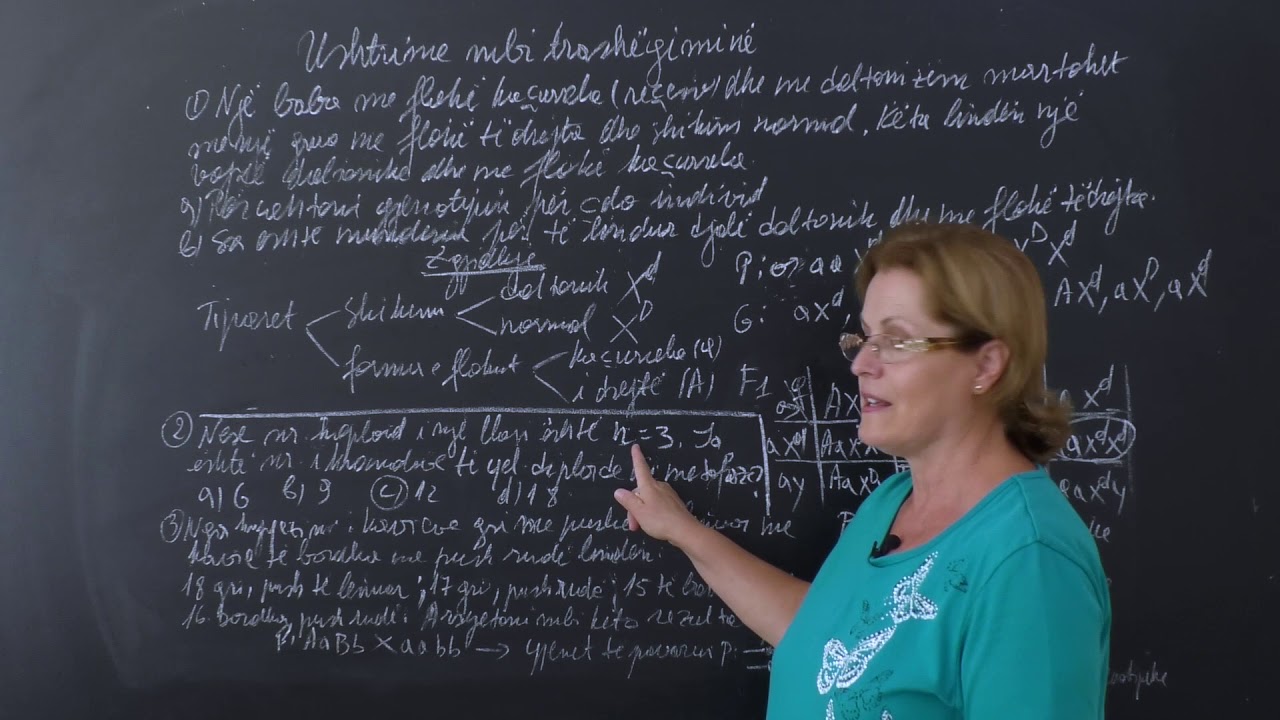 Ushtrime mbi trashëgiminë
① Një baba me flokë kaçurrela (reçesiv) dhe me daltonizëm martohet
me një grua me flokë të drejta dhe shikim normal. Këta lindën një
vajzë daltonike dhe me flokë kaçurrela.
a) Përcaktoni gjenotipin për çdo individ
b) Sa është mundësia për të lindur djalë daltonik dhe me flokë të drejta.
Zgjidhje
P: ♂ aa X
D X^d
G: aX^d,
AX^d, aX^D, aX^d
Tiparet
Shikimi
daltonik X^d
normal X^D
forma e flokut
kaçurrela (a)
i drejtë (A)
F1
AX
aX^d
aX^d
AaX
aX^d
aY
AaX^D
aaX^dY
② Nëse nr haploid i një lloji është n=3. Sa
është nr i kromatideve të qel diploide në metafazë?
a) 6 b) 9 c) 12 d) 18
③ Nga kryqëzimi i kavieve gri me push
me
kavie të bardha me push rudë lindën:
18 gri, push të lëmuar; 17 gri, push rudë; 15 të
16 bardha, push rudë. Arsyetoni mbi këto
P: AaBb X aabb → gjenet te P: